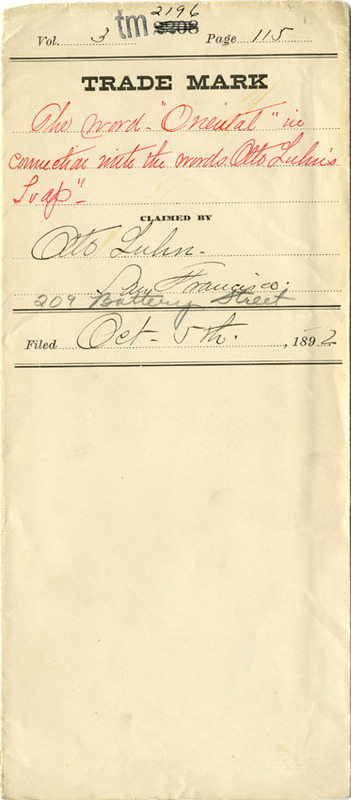 2196
Vol. 3 tm 3208 Page 115
TRADE MARK
The word "Oriental" in
connection with the words Otto Luhn's
Soap"
CLAIMED BY
Otto Luhn.
San Francisco.
209 Battery Street
Filed Oct. 5th. , 1892